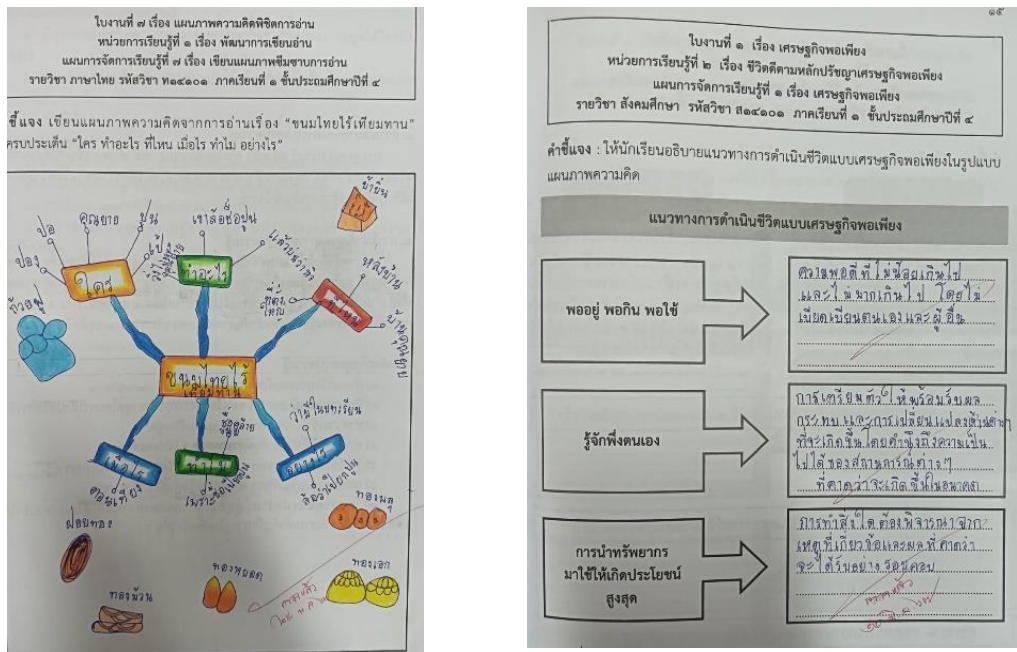 ใบงานที่ ๗ เรื่อง แผนภาพความคิดพิชิตการอ่าน
หน่วยการเรียนรู้ที่ ๑ เรื่อง พัฒนาการเขียนอ่าน
แผนการจัดการเรียนรู้ที่ ๗ เรื่อง เขียนแผนภาพซึมซาบการอ่าน
รายวิชา ภาษาไทย รหัสวิชา ท๑๔๑๐๑ ภาคเรียนที่ ๑ ชั้นประถมศึกษาปีที่ ๔
ชี้แจง เขียนแผนภาพความคิดจากการอ่านเรื่อง "ขนมไทยไร้เทียมทาน"
ครบประเด็น "ใคร ทำอะไร ที่ไหน เมื่อไร ทำไม อย่างไร"
ป้าขิ่น
ปอง
ปอ
คุณยาย
ปูน
เป้
ใคร
เขาล้อชื่อปูน
ทำอะไร
หลังบ้าน
บ้านคุณยาย
ที่ไหน
ถ้วยฟู
ขนมไทยไร้
เทียมทาน
เมื่อไร
ตอนเที่ยง
ทำไม
อย่างไร
ล้อว่าเปียกปูน
ฝอยทอง
ทองม้วน
ทองหยอด
ทองพลุ
ทองเอก
ตรวจแล้ว
๑๕
ใบงานที่ ๑ เรื่อง เศรษฐกิจพอเพียง
หน่วยการเรียนรู้ที่ ๒ เรื่อง ชีวิตดีตามหลักปรัชญาเศรษฐกิจพอเพียง
แผนการจัดการเรียนรู้ที่ ๑ เรื่อง เศรษฐกิจพอเพียง
รายวิชา สังคมศึกษา รหัสวิชา ส๑๔๑๐๑ ภาคเรียนที่ ๑ ชั้นประถมศึกษาปีที่ ๔
คำชี้แจง : ให้นักเรียนอธิบายแนวทางการดำเนินชีวิตแบบเศรษฐกิจพอเพียงในรูปแบบ
แผนภาพความคิด
แนวทางการดำเนินชีวิตแบบเศรษฐกิจพอเพียง
พออยู่ พอกิน พอใช้
ความพอดีที่ไม่น้อยเกินไป
และไม่มากเกินไป โดยไม่
เบียดเบียนตนเองและผู้อื่น
รู้จักพึ่งตนเอง
การเตรียมตัวให้พร้อมรับผล
กระทบและการเปลี่ยนแปลงด้านต่างๆ
ที่จะเกิดขึ้นโดยคำนึงถึงความเป็น
ไปได้ของสถานการณ์ต่างๆ
ที่คาดว่าจะเกิดขึ้นในอนาคต
การนำทรัพยากร
มาใช้ให้เกิดประโยชน์
สูงสุด
การทำสิ่งใดต้องพิจารณาจาก
เหตุที่เกี่ยวข้อและผลที่คาดว่า
จะได้รับอย่างรอบคอบ
ตรวจแล้ว